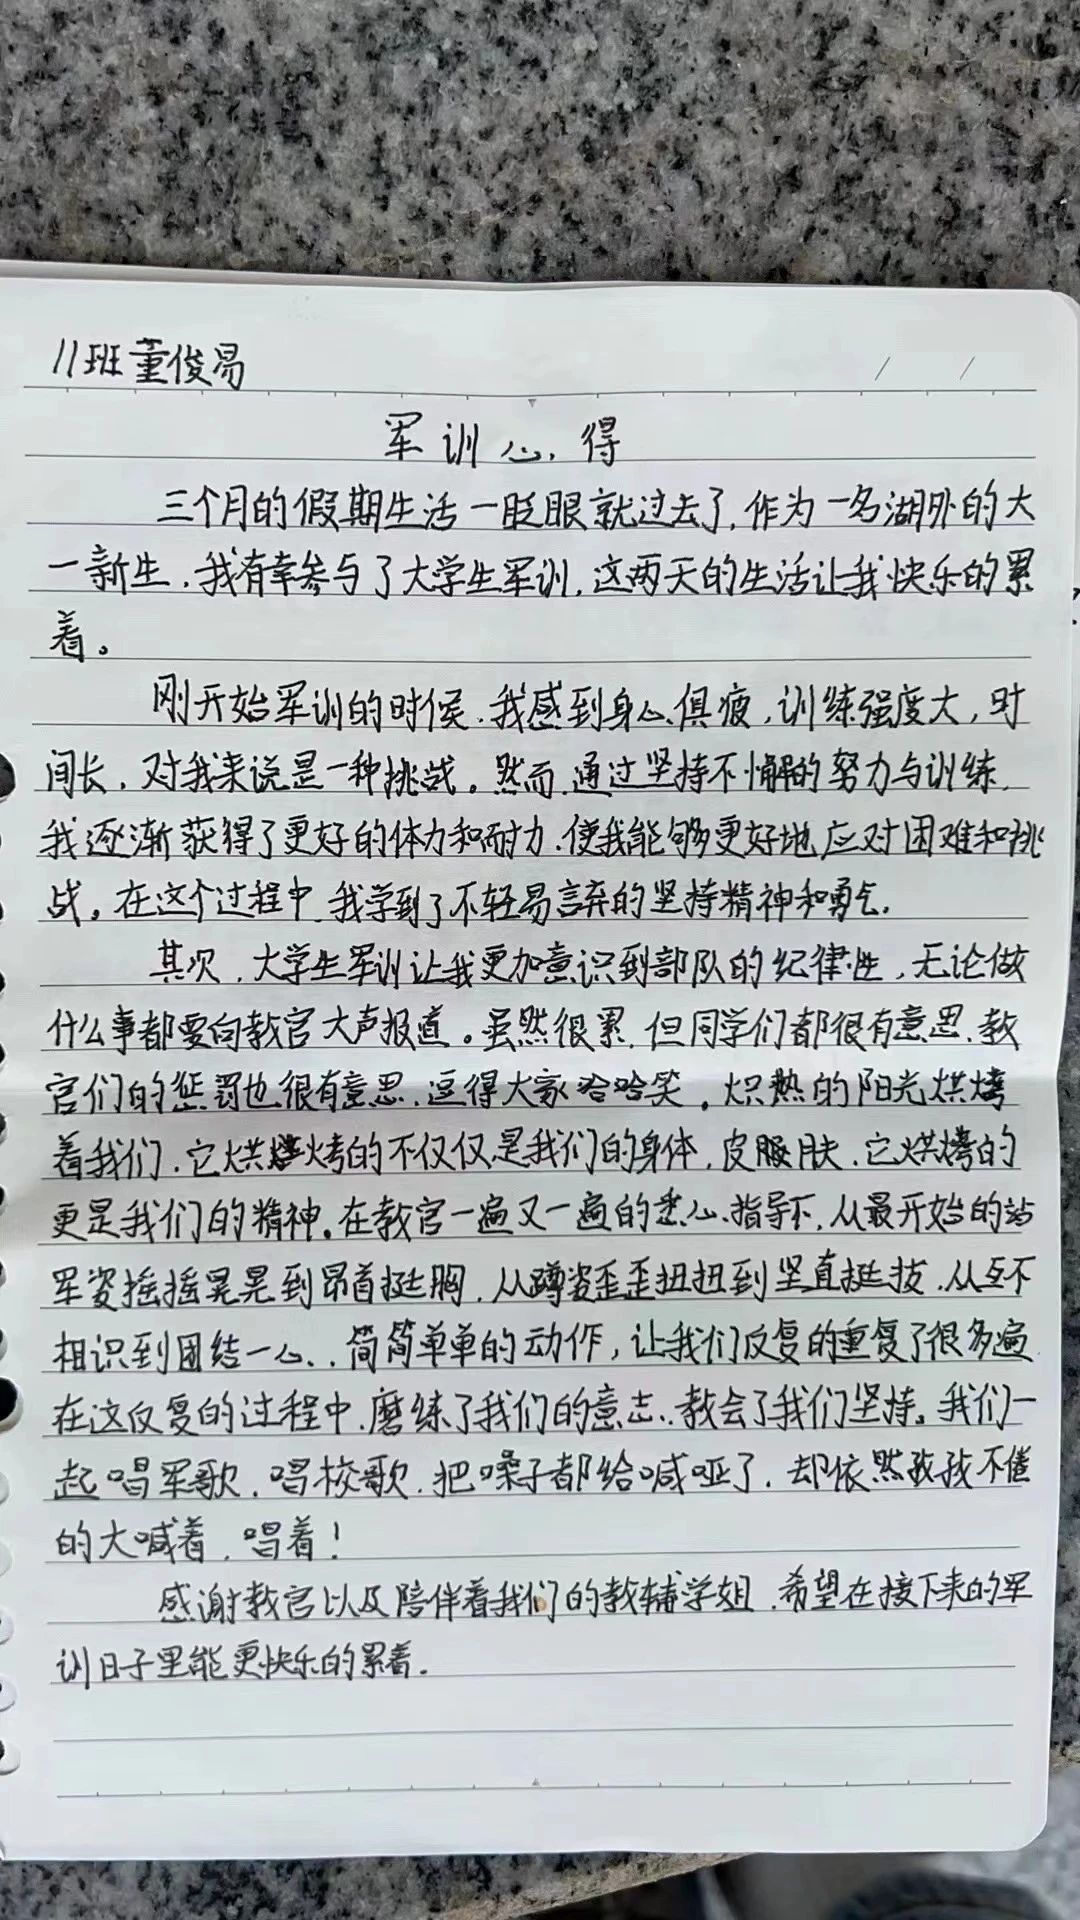 11班董俊易
军训心得
三个月的假期生活一眨眼就过去了,作为一名湖外的大
一新生,我有幸参与了大学生军训,这两天的生活让我快乐的累
着。
刚开始军训的时候,我感到身心俱疲,训练强度大,时
间长,对我来说是一种挑战。然而,通过坚持不懈的努力与训练,
我逐渐获得了更好的体力和耐力,使我能够更好地应对困难和挑
战。在这个过程中,我学到了不轻易言弃的坚持精神和勇气.
其次,大学生军训让我更加意识到部队的纪律性,无论做
什么事都要向教官大声报道。虽然很累,但同学们都很有意思,教
官们的惩罚也很有意思,逗得大家哈哈笑。炽热的阳光烘烤
着我们,它烘烤的不仅仅是我们的身体,皮肤,它烘烤的
更是我们的精神。在教官一遍又一遍的悉心指导下,从最开始的站
军姿摇摇晃晃到昂首挺胸,从蹲姿歪歪扭扭到坚直挺拔,从互不
相识到团结一心,简简单单的动作,让我们反复的重复了很多遍
在这反复的过程中,磨练了我们的意志,教会了我们坚持。我们一
起唱军歌,唱校歌,把嗓子都给喊哑了,却依然孜孜不倦
的大喊着,唱着!
感谢教官以及陪伴着我们的教辅学姐,希望在接下来的军
训日子里能更快乐的累着.